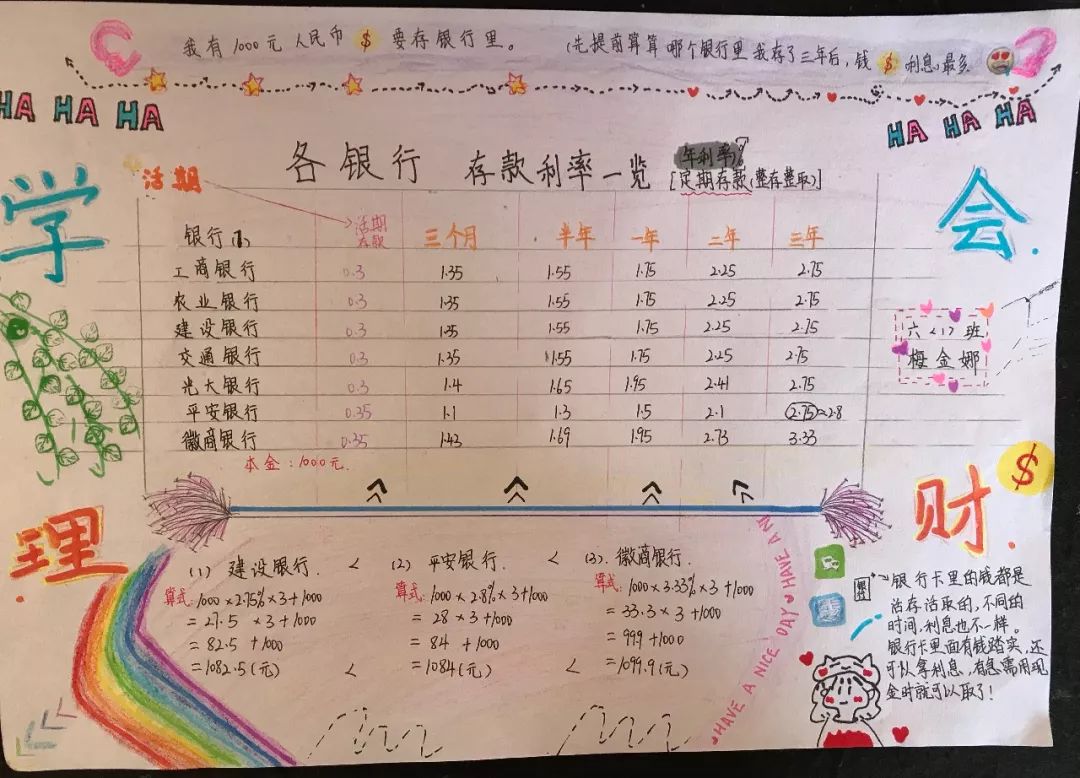 我有1000元人民币$要存银行里。 (先提前算算哪个银行里我存了三年后,钱$利息,最多
HA HA HA
HA HA HA
学会.
理财.
活期
各银行 存款利率一览
年利率%
[定期存款(整存整取)]
银行(1) 活期存款 三个月 半年 一年 二年 三年
工商银行 0.3 1.35 1.55 1.75 2.25 2.75
农业银行 0.3 1.35 1.55 1.75 2.25 2.75
建设银行 0.3 1.35 1.55 1.75 2.25 2.75
交通银行 0.3 1.35 1.55 1.75 2.25 2.75
光大银行 0.3 1.4 1.65 1.95 2.41 2.75
平安银行 0.35 1.1 1.3 1.5 2.1 2.75≈2.8
徽商银行 0.35 1.43 1.69 1.95 2.73 3.33
本金:1000元.
六<1>班
梅金娜
$
(1) 建设银行. < (2) 平安银行. < (3). 徽商银行.
算式: 1000×2.75%×3+1000
=27.5 ×3+1000
=82.5 +1000
=1082.5(元) <
算式: 1000×2.8%×3+1000
=28 ×3+1000
=84 +1000
=1084(元) <
算式: 1000×3.33%×3+1000
=33.3×3 +1000
=99.9 +1000
=1099.9(元)
HAVE A NICE DAY HAVE A NI
银行卡里的钱都是
活存活取的,不同的
时间,利息也不一样。
银行卡里面有钱踏实,还
可以拿利息,有急需用现
金时就可以取了!